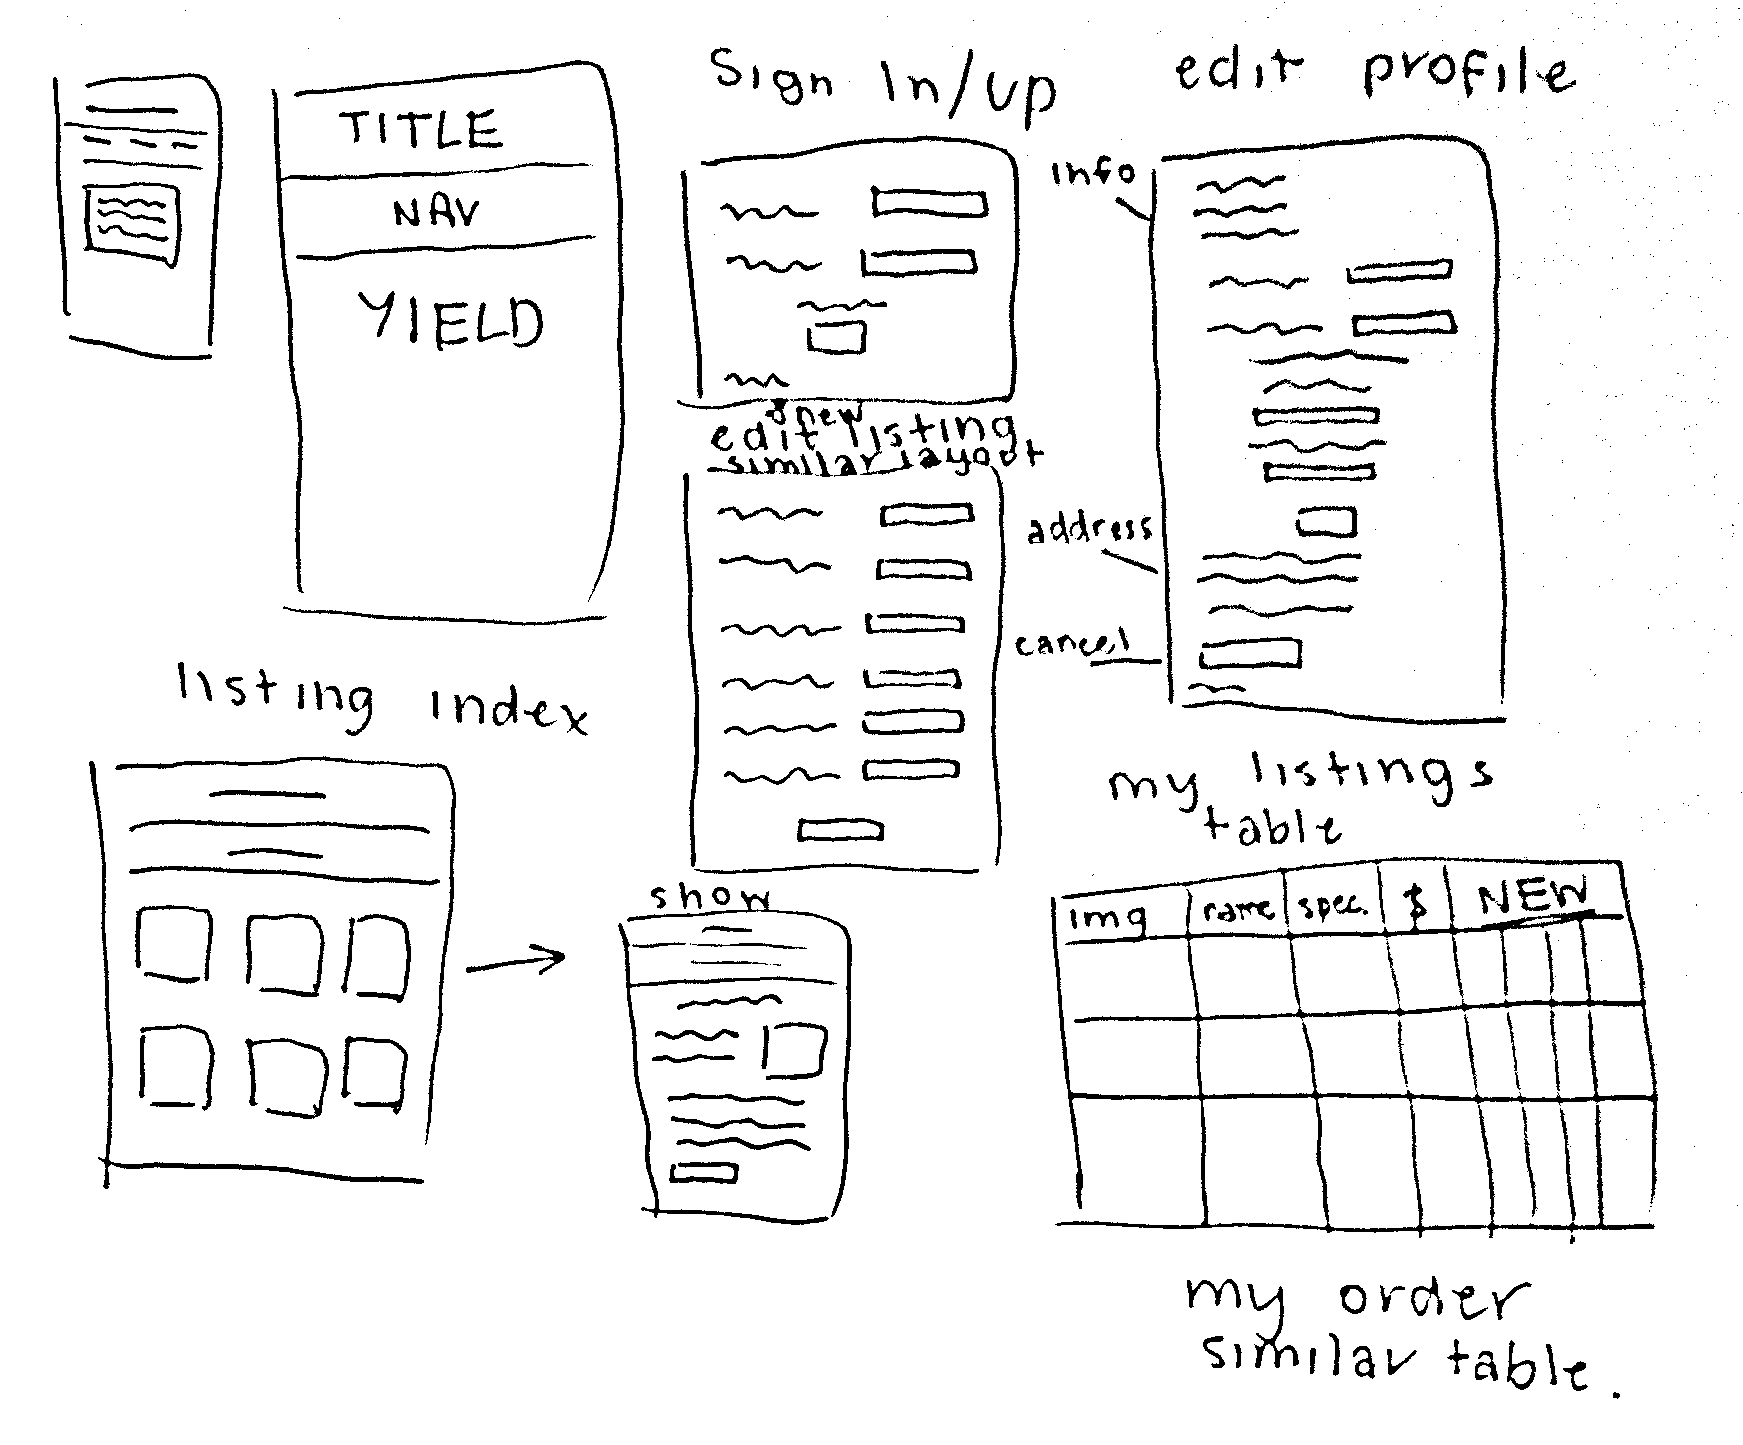 TITLE
NAV
YIELD
Sign In/up
edit profile
info
& new
edit listing
similar layout
address
cancel
listing index
show
my listings
table
img name spec. $ NEW
my order
similar table.